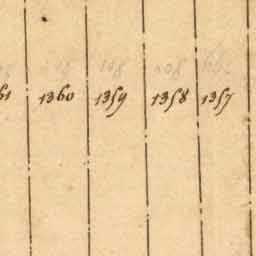 61 1360 1359 1358 1357